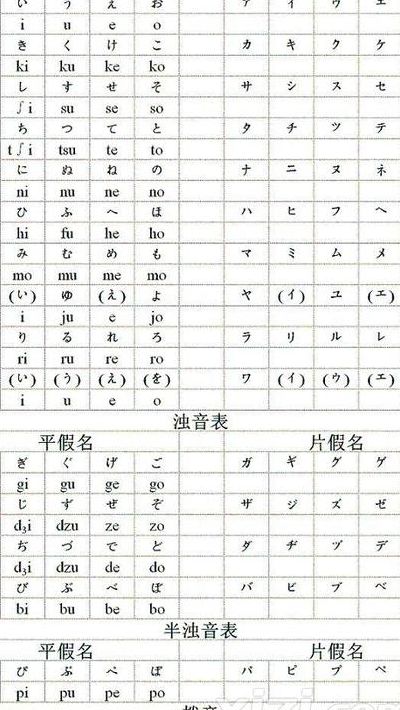 い う え お ア イ ウ エ
i u e o
き く け こ カ キ ク ケ
ki ku ke ko
し す せ そ サ シ ス セ
ʃi su se so
ち つ て と タ チ ツ テ
tʃi tsu te to
に ぬ ね の ナ ニ ヌ ネ
ni nu ne no
ひ ふ へ ほ ハ ヒ フ ヘ
hi fu he ho
み む め も マ ミ ム メ
mo mu me mo
(い) ゆ (え) よ ヤ (イ) ユ (エ)
i ju e jo
り る れ ろ ラ リ ル レ
ri ru re ro
(い) (う) (え) (を) ワ (イ) (ウ) (エ)
i u e o
浊音表
平假名 片假名
ぎ ぐ げ ご ガ ギ グ ゲ
gi gu ge go
じ ず ぜ ぞ ザ ジ ズ ゼ
dʒi dzu ze zo
ぢ づ で ど ダ ヂ ヅ デ
dʒi dzu de do
び ぶ べ ぼ バ ビ ブ ベ
bi bu be bo
半浊音表
平假名 片假名
ぴ ぷ ぺ ぽ パ ピ プ ペ
pi pu pe po